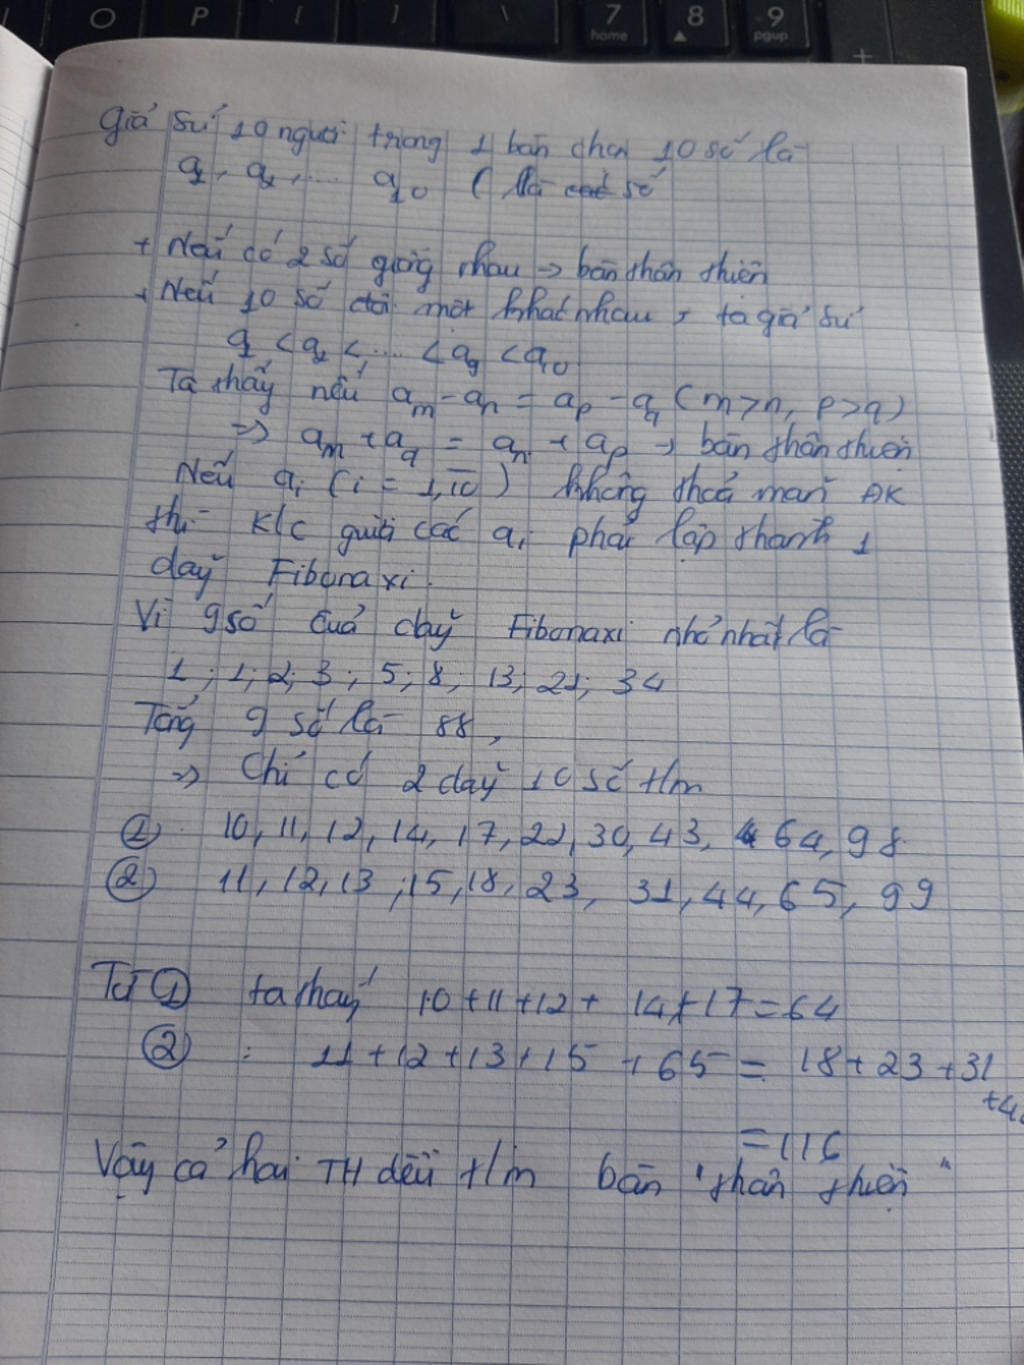 O P [ ] \ 7 8 9
home ▲ pgup
+
Giả sử 10 người trong 1 bàn chọn 10 số là
a1, a2, .... a10 ( là các số
+ Nếu có 2 số giống nhau → bàn thân thiện
+ Nếu 10 số đôi một khác nhau, ta giả sử
a1 < a2 < .... < a9 < a10
Ta thấy nếu am - an = ap - aq ( m > n, p > q )
=> am + aq = an + ap → bàn thân thiện
Nếu ai ( i = 1,10 ) không thoả mãn ĐK
thì K/c giữa các ai phải lập thành 1
dãy Fibonaxi.
Vì 9 số của dãy Fibonaxi nhỏ nhất là
1 ; 1; 2; 3 ; 5; 8; 13; 21; 34
Tổng 9 số là 88,
=> Chỉ có 2 dãy 10 số t/m
① 10, 11, 12, 14, 17, 22, 30, 43, 64, 98
② 11, 12, 13 ; 15, 18, 23, 31, 44, 65, 99
Từ ① ta thấy 10 + 11 + 12 + 14 + 17 = 64
② : 11 + 12 + 13 + 15 + 65 = 18 + 23 + 31
= 116
Vậy cả hai TH đều t/m bàn "thân thiện"